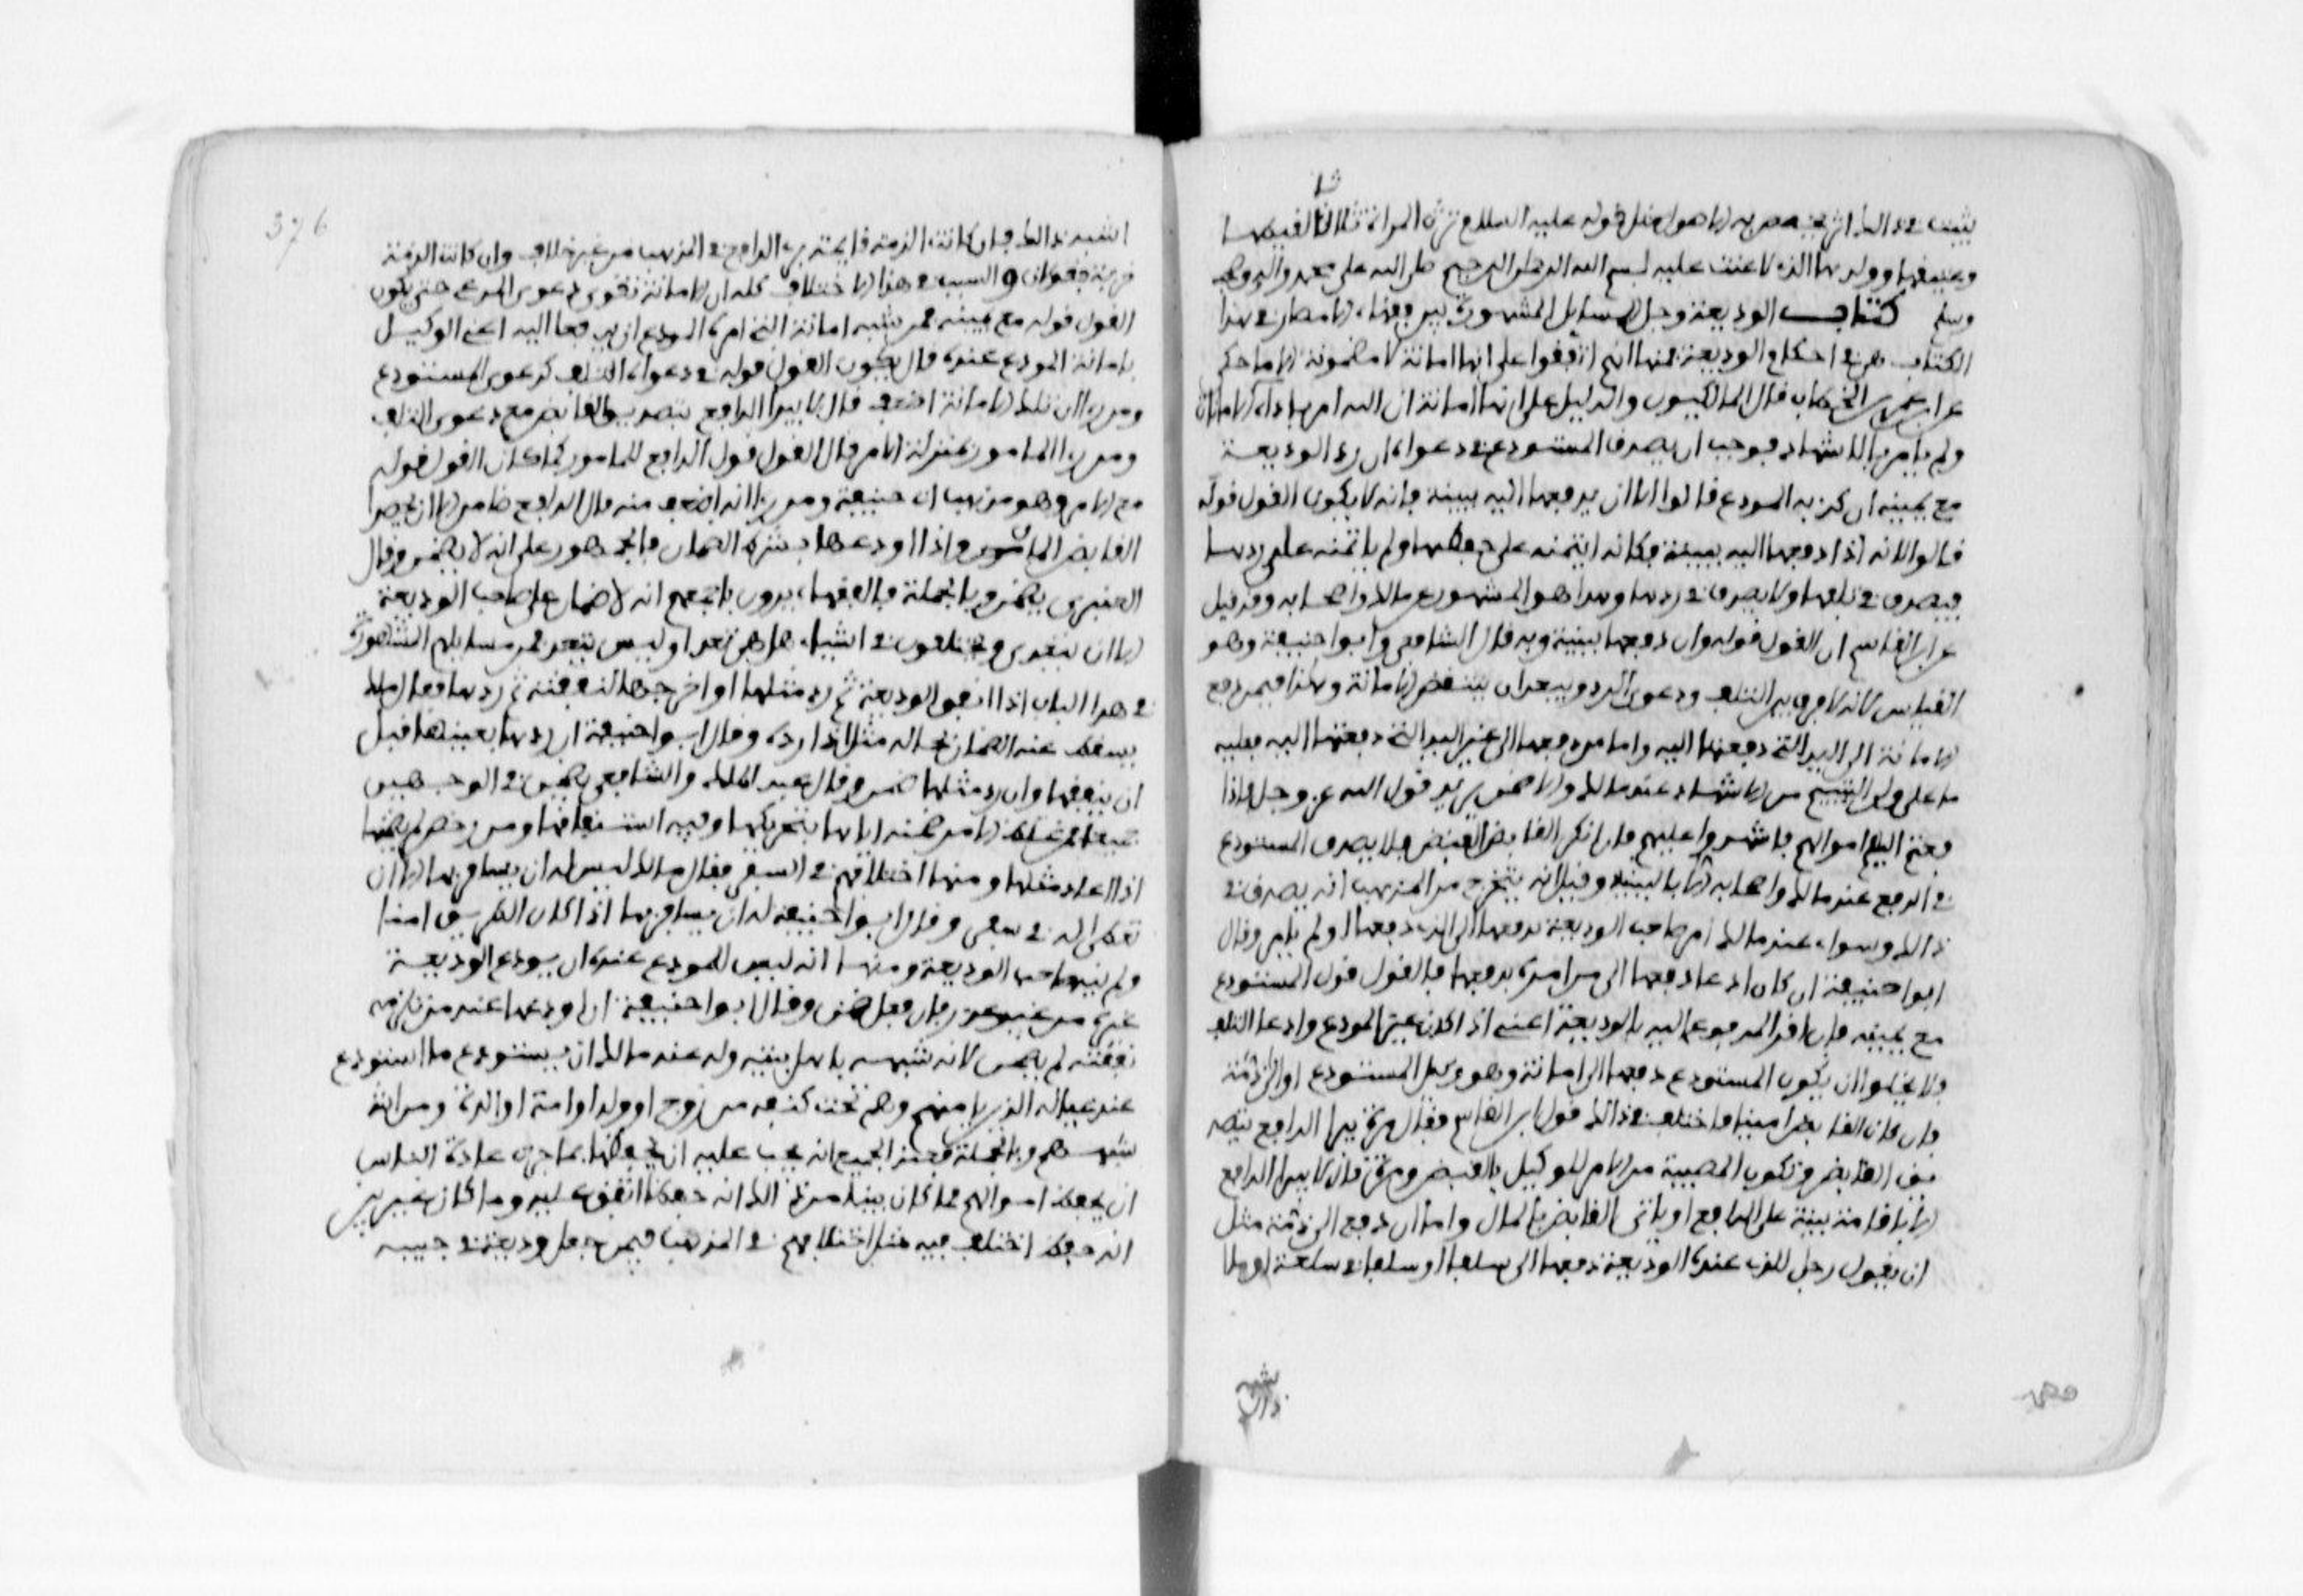 ثلا
يثبت في ذلك اثر يجب المصير به الا هو مثل قوله عليه السلام ترث المراة ثلاثا لقيطها
وعتيقها وولدها الذي لاعنت عليه بسم الله الرحمن الرحيم صلى الله على محمد واله وصحبه
وسلم كتاب الوديعة وجل المسايل المشهورة بين فقهاء الامصار في هذا
الكتاب هي في احكام الوديعة فمنها انهم اتفقوا على انها امانة لا مضمونة الا ما حكي
عن عمر بن الخطاب قال المالكيون والدليل على انها امانة ان الله امر باداء الامانات
ولم يامر بالاشهاد فوجب ان يصدق المستودع في دعواه ان رد الوديعة
مع يمينه ان كذبه المودع قالوا الا ان يدفعها اليه ببينة فانه لا يكون القول قوله
قالوا لانه اذا دفعها اليه ببينة فكانه ايتمنه على حفظها ولم ياتمنه على ردها
فيصدق في تلفها ولا يصدق في ردها وهذا هو المشهور عن مالك واصحابه وقد قيل
عن ابن القاسم ان القول قوله وان دفعها ببينة وبه قال الشافعي وابوا حنيفة وهو
القياس لانه لا فرق بين التلف ودعوى الرد ويبعد ان تنتقض الامانة وهذا فيمن دفع
الامانة الى اليد التي دفعتها اليه واما من دفعها الى غير اليد التي دفعتها اليه فعليه
ما على ولي اليتيم من الاشهاد عند مالك والا ضمن يريد قول الله عز وجل فاذا
دفعتم اليهم اموالهم فاشهدوا عليهم فان انكر القابض القبض فلا يصدق المستودع
في الدفع عند مالك واصحابه الا بالبينة وقيل انه يتخرج من المذهب انه يصدق في
ذالك وسواء عند مالك امر صاحب الوديعة بدفعها الى الذي دفعها او لم يامر وقال
ابوا حنيفة ان كان ادعا دفعها الى من امره بدفعها فالقول قول المستودع
مع يمينه فان اقر المدفوع اليه بالوديعة اعني اذا كان غير المودع وادعا التلف
فلا يخلوا ان يكون المستودع دفعها الى امانة وهو وكيل المستودع او الى ذمة
فان كان القابض امينا فاختلف في ذالك قول ابن القاسم فقال مرة يبرا الدافع بتصد
يق القابض وتكون المصيبة من الامر الوكيل بالقبض ومرة قال لا يبرا الدافع
الا باقامة بينة على الدافع او ياتي القابض بالمال واما ان دفع الى ذمة مثل
ان يقول رجل للذي عنده الوديعة ادفعها الي سلفا او سلفا في سلعة او ما
376
اشبه ذالك فان كانت الذمة قايمة بري الدافع في المذهب من غير خلاف وان كانت الذمة
خربة فقولان والسبب في هذا الاختلاف كله ان الامانة تقوي دعوى المدعي حتى يكون
القول قوله مع يمينه فمن شبه امانة الذي امره المودع ان يدفعها اليه اعني الوكيل
بامانة المودع عنده قال يكون القول قوله في دعواه التلف كدعوى المستودع
ومن راى ان تلك الامانة اضعف قال لا يبرا الدافع بتصديق القابض مع دعوى التلف
ومن راى المامور بمنزلة الامر قال القول قول الدافع للمامور كما كان القول قوله
مع الامر وهو مذهب ابي حنيفة ومن راى انه اضعف منه قال الدافع ضامن الا ان يحضر
القابض المال واذا اودعها بشرط الضمان فالجمهور على انه لا يضمن وقال
العنبري يضمن وبالجملة فالفقهاء يرون باجمعهم انه لا ضمان على صاحب الوديعة
الا ان يتعدى ويختلفون في اشياء هل هي تعد او ليس بتعد فمن مسايلهم المشهورة
في هذا الباب اذا انفق الوديعة ثم رد مثلها او اخرجها لنفقته ثم ردها فقال مالك
يسقط عنه الضمان بحاله مثل اذا ردها وقال ابوا حنيفة ان ردها بعينها قبل
ان ينفقها وان رد مثلها ضمن وقال عبد الملك والشافعي يضمن في الوجهين
جميعا فمن غلظ الامر ضمنه اياها بتحريكها ونية استنفاقها ومن رخص لم يضمنها
اذا اعاد مثلها ومنها اختلافهم في السفر فقال مالك ليس له ان يسافر بها الا ان
تعطى له في سفر وقال ابوا حنيفة له ان يسافر بها اذا كان الطريق امنا
ولم ينهه صاحب الوديعة ومنها انه ليس للمودع عنده ان يودع الوديعة
غيره من غير عذر فان فعل ضمن وقال ابوا حنيفة ان اودعها عند من تلزمه
نفقته لم يضمن لانه شبهه باهل بيته وله عند مالك ان يستودع ما استودع
عند عياله الذين يامنهم وهم تحت كنفه من زوج او ولد او امة او اثرة ومن
شبههم وبالجملة فعند الجميع انه يجب عليه ان يحفظها بما جرت عادة الناس
ان يحفظ اموالهم فما كان بينا من ذالك انه حفظ اتفق عليه وما كان غير بين
انه حفظ اختلف فيه مثل اختلافهم في المذهب فيمن جعل وديعة في جيبه